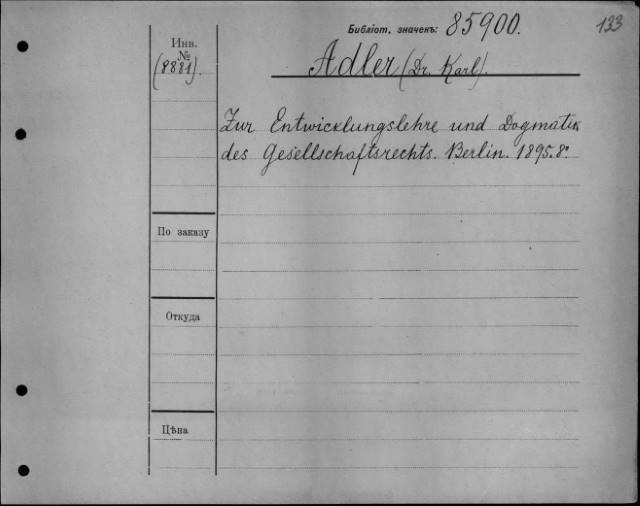 Библіот. значекъ: 85900.
133
Инв.
№
(8881).
Adler (Dr. Karl).
Zur Entwicklungslehre und Dogmatik
des Gesellschaftsrechts. Berlin. 1895. 8º.
По заказу
Откуда
Цѣна